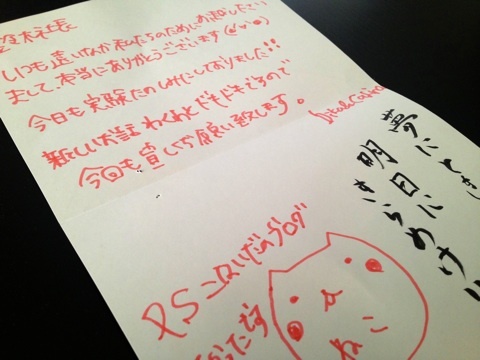 金木社長
いつも遠いなか私たちのためにお越しください
まして、本当にありがとうございます(๑'v'๑)
今日も実験たのしみにしておりました!!
新しいお話 わくわくとドキドキで
今回も宜しくお願い致します。
夢にとき
明日に
きらめけい
P.S こないだのブログ
ったです
ねこ